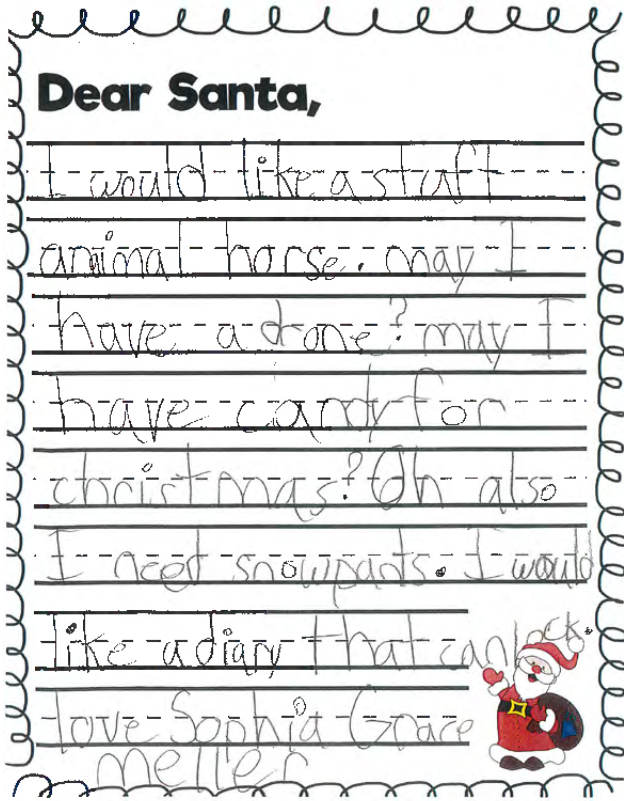 Dear Santa,
I would like a staff
animal horse. may I
have a drone? may I
have candy for
christmas? Oh also
I need snowpants. I would
like a diary that can lock.
love Sophia Grace
meller